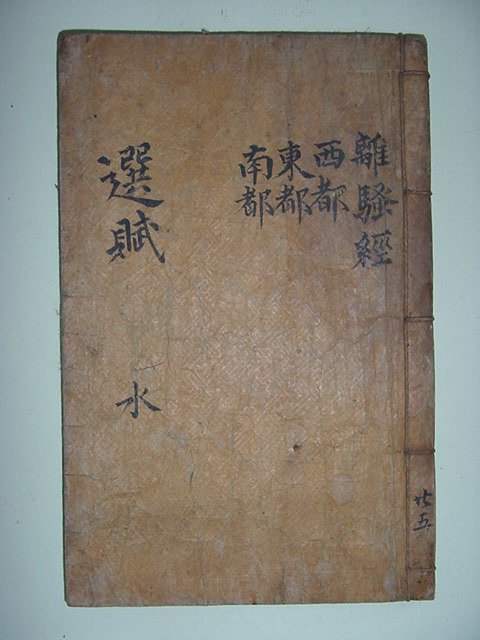 離騷經
西都
東都
南都
選賦 水
廿五